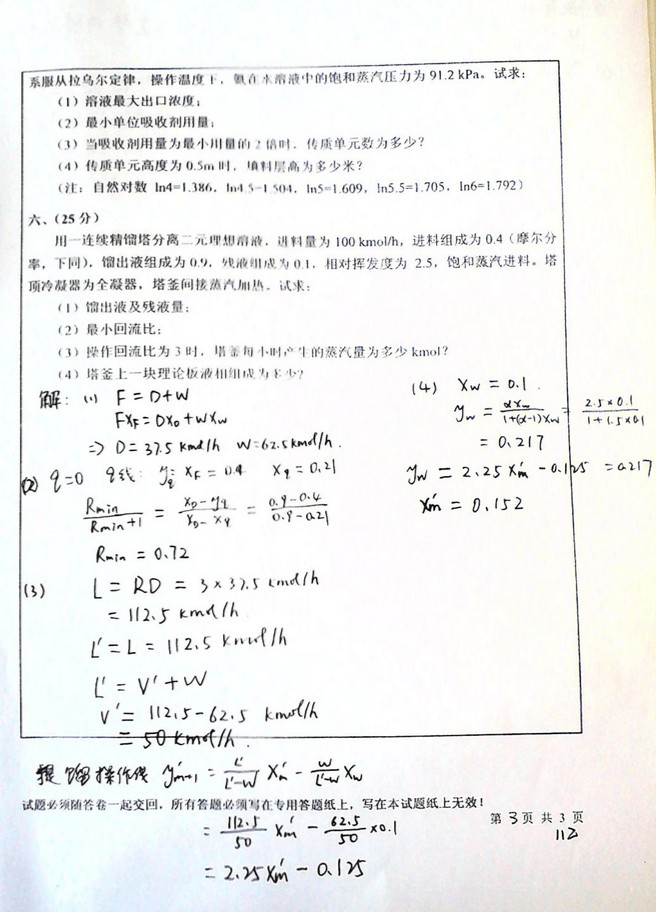 系服从拉乌尔定律，操作温度下，氨在水溶液中的饱和蒸汽压力为 91.2 kPa。试求：
（1）溶液最大出口浓度；
（2）最小单位吸收剂用量；
（3）当吸收剂用量为最小用量的 2 倍时，传质单元数为多少？
（4）传质单元高度为 0.5m 时，填料层高为多少米？
（注：自然对数 ln4=1.386, ln4.5=1.504, ln5=1.609, ln5.5=1.705, ln6=1.792）
六、（25 分）
用一连续精馏塔分离二元理想溶液，进料量为 100 kmol/h，进料组成为 0.4（摩尔分
率，下同），馏出液组成为 0.9，残液组成为 0.1，相对挥发度为 2.5，饱和蒸汽进料。塔
顶冷凝器为全凝器，塔釜间接蒸汽加热。试求：
（1）馏出液及残液量；
（2）最小回流比；
（3）操作回流比为 3 时，塔釜每小时产生的蒸汽量为多少 kmol？
（4）塔釜上一块理论板液相组成为多少？
解：(1) F = D+W
FX_F = DX_D + WX_W
=> D = 37.5 kmol/h W = 62.5 kmol/h.
(2) q=0 q线: y_q = X_F = 0.4 X_q = 0.21
Rmin/(Rmin+1) = (X_D - y_q)/(X_D - X_q) = (0.9-0.4)/(0.9-0.21)
Rmin = 0.72
(3) L = RD = 3 × 37.5 kmol/h
= 112.5 kmol/h.
L' = L = 112.5 kmol/h
L' = V' + W
V' = 112.5 - 62.5 kmol/h
= 50 kmol/h.
提馏操作线 y'm+1 = L'/(L'-W) X'm - W/(L'-W) X_W
试题必须随答卷一起交回，所有答题必须写在专用答题纸上，写在本试题纸上无效！
= 112.5/50 X'm - 62.5/50 × 0.1
= 2.25 X'm - 0.125
(4) X_W = 0.1.
y_W = αX_W/(1+(α-1)X_W) = 2.5×0.1/(1+1.5×0.1)
= 0.217
y_W = 2.25 X'm - 0.125 = 0.217
X'm = 0.152
第 3 页 共 3 页
112